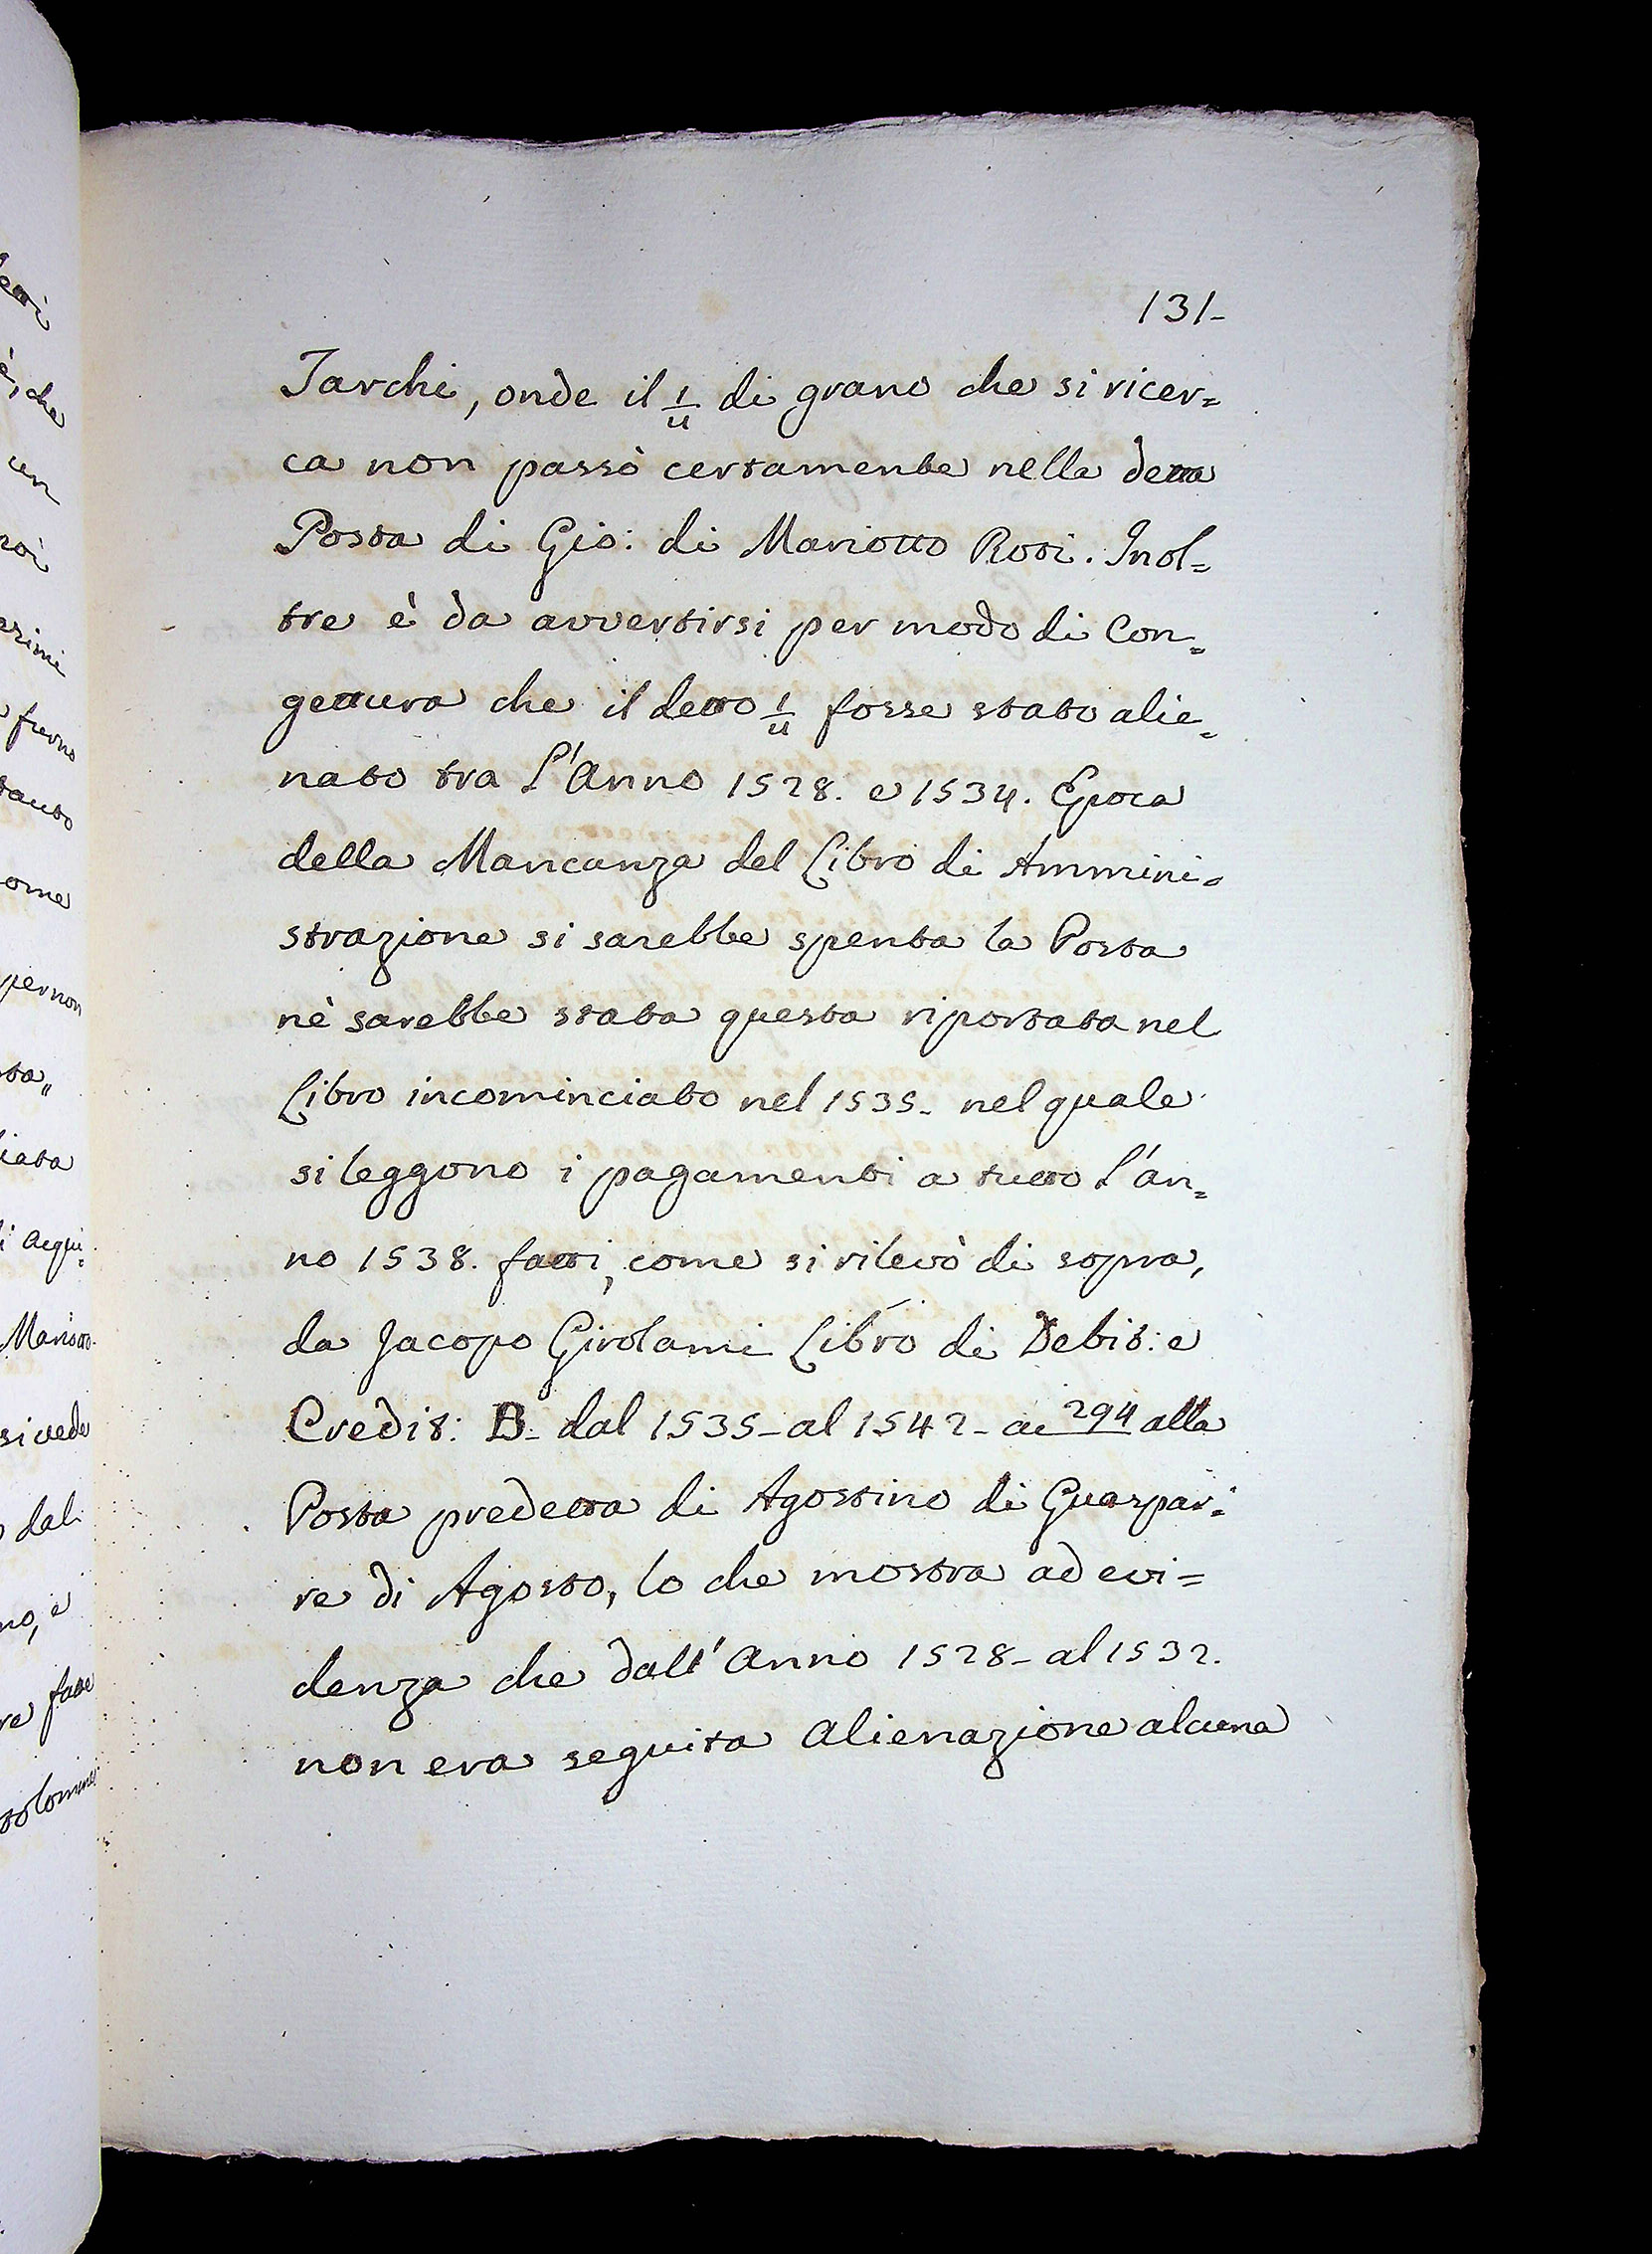 131-
Tarchi, onde il 1/u di grano che si ricer=
ca non passò certamente nella detta
Posta di Gio: di Mariotto Rosi. Inol=
tre è da avvertirsi per modo di Con=
gettura che il detto 1/u fosse stato alie=
nato tra l'Anno 1528. e 1534. Epoca
della Mancanza del Libro di Ammini=
strazione si sarebbe spenta la Posta
nè sarebbe stata questa riportata nel
Libro incominciato nel 1535- nel quale
si leggono i pagamenti a tutto l'an=
no 1538. fatti, come si rilevò di sopra,
da Jacopo Girolami Libro di Debit: e
Credit: B- dal 1535- al 1542- a 294 alla
Posta predetta di Agostino di Guaspar=
re di Agosto, lo che mostra ad evi=
denza che dall'Anno 1528- al 1532.
non era seguita Alienazione alcuna